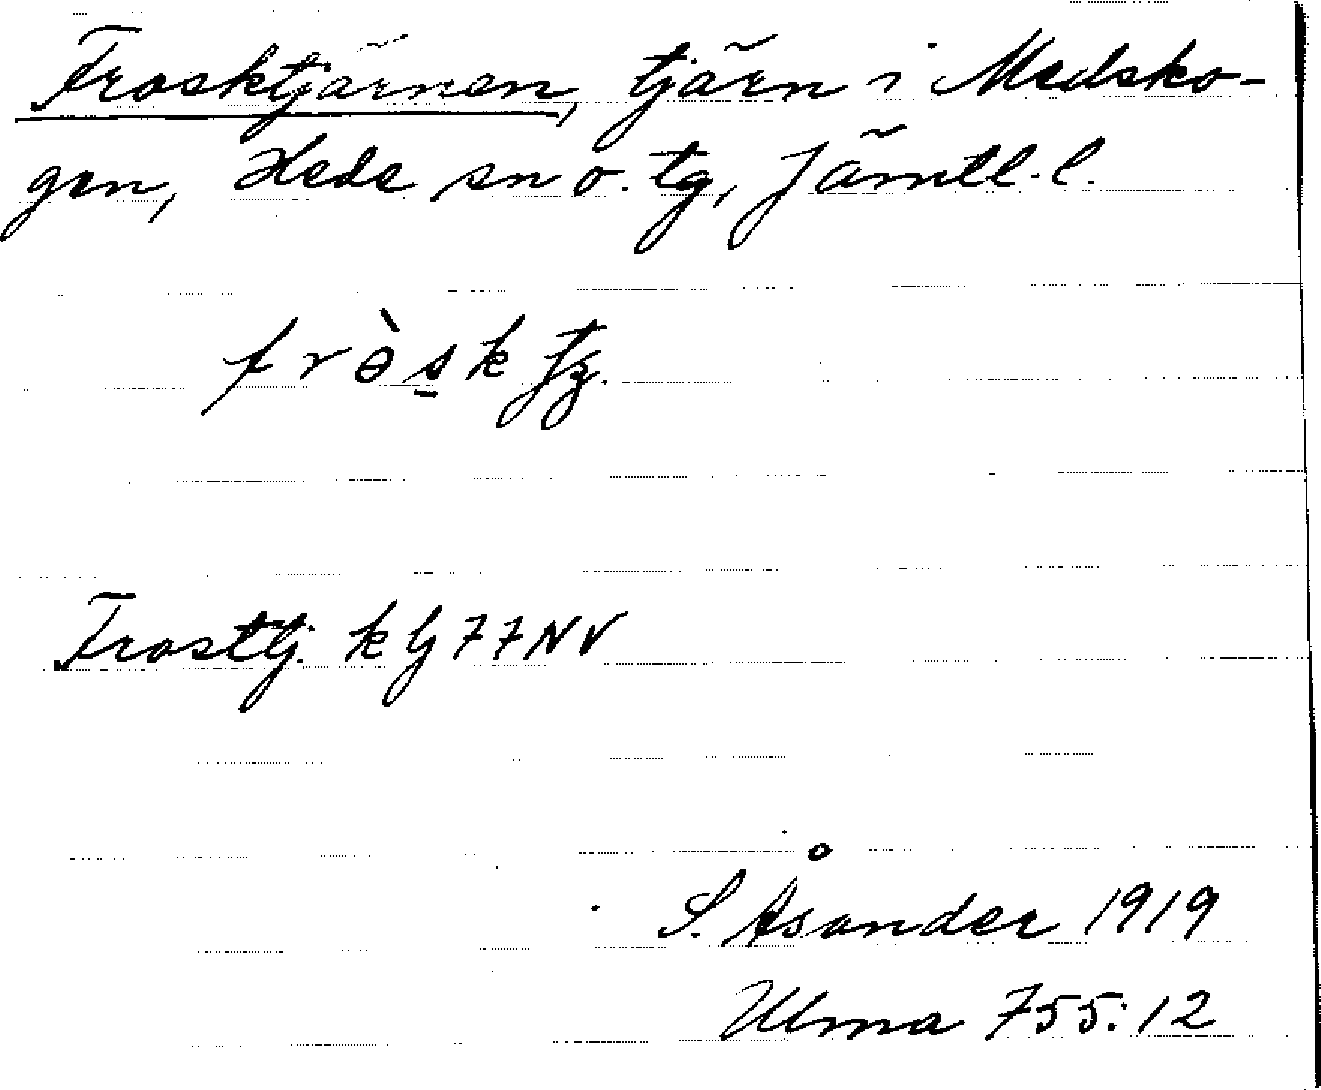 Frosktjärnen, tjärn i Medsko-
gen, Hede sn o. tg, Jämtl. l.
frɵ̀sk
Frosttj. k bj 77NV
S. Åsander 1919
Ulma 755:12